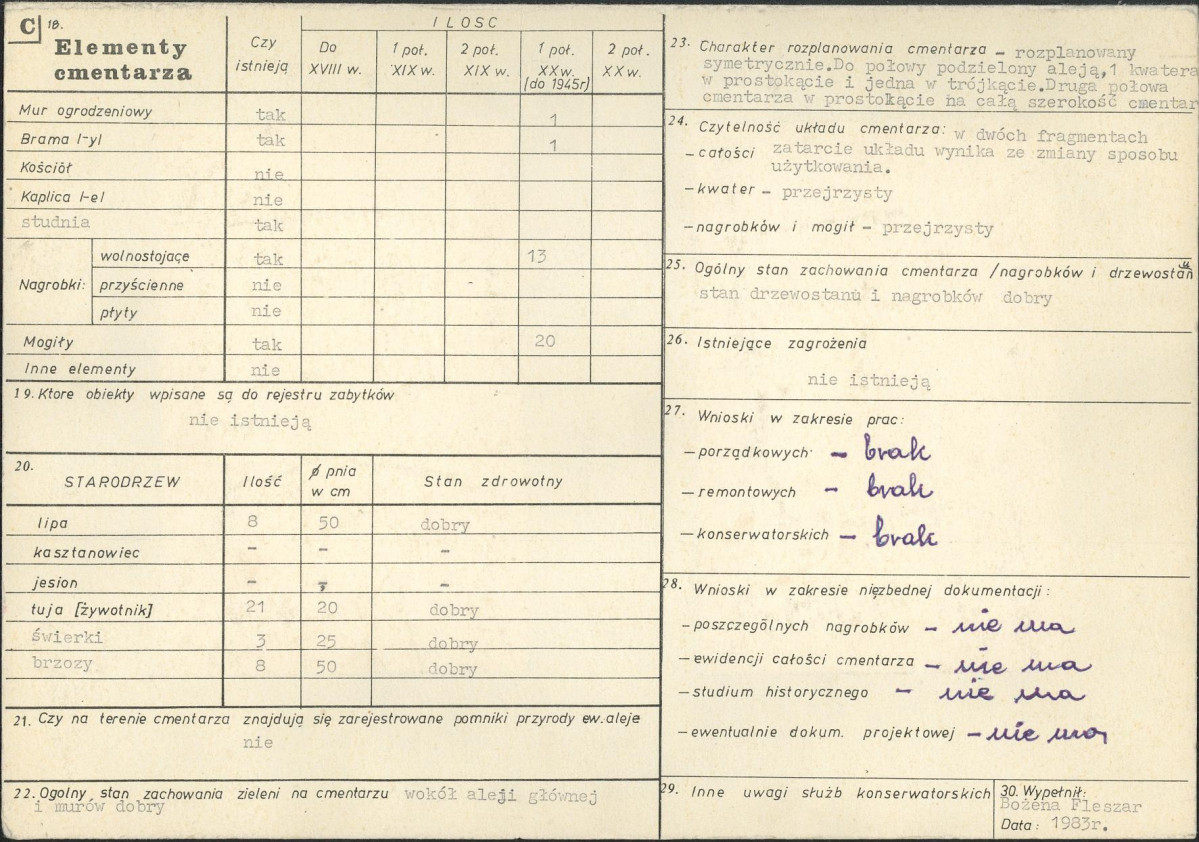 C 18.
Elementy cmentarza
Czy istnieją
ILOSC
Do XVIII w.
1 poł. XIX w.
2 poł. XIX w.
1 poł. XX w. (do 1945r)
2 poł. XX w.
Mur ogrodzeniowy tak 1
Brama l-yl tak 1
Kościół nie
Kaplica l-el nie
studnia tak
Nagrobki:
wolnostojące tak 13
przyścienne nie
płyty nie
Mogiły tak 20
Inne elementy nie
19. Ktore obiekty wpisane są do rejestru zabytków
nie istnieją
20.
STARODRZEW Ilość ø pnia w cm Stan zdrowotny
lipa 8 50 dobry
kasztanowiec - - -
jesion - - -
tuja [żywotnik] 21 20 dobry
świerki 3 25 dobry
brzozy 8 50 dobry
21. Czy na terenie cmentarza znajdują się zarejestrowane pomniki przyrody ew. aleje
nie
22. Ogolny stan zachowania zieleni na cmentarzu wokół aleji głównej
i murów dobry
23. Charakter rozplanowania cmentarza - rozplanowany
symetrycznie.Do połowy podzielony aleją,1 kwatera
w prostokącie i jedna w trójkącie.Druga połowa
cmentarza w prostokącie na całą szerokość cmentar
24. Czytelność układu cmentarza: w dwóch fragmentach
- całości zatarcie układu wynika ze zmiany sposobu
użytkowania.
- kwater - przejrzysty
- nagrobków i mogił - przejrzysty
25. Ogólny stan zachowania cmentarza /nagrobków i drzewostan
stan drzewostanu i nagrobków dobry
26. Istniejące zagrożenia
nie istnieją
27. Wnioski w zakresie prac:
- porządkowych - brak
- remontowych - brak
- konserwatorskich - brak
28. Wnioski w zakresie nięzbednej dokumentacji:
- poszczególnych nagrobków - nie ma
- ewidencji całości cmentarza - nie ma
- studium historycznego - nie ma
- ewentualnie dokum. projektowej - nie ma
29. Inne uwagi służb konserwatorskich
30. Wypełnił:
Bożena Fleszar
Data: 1983r.